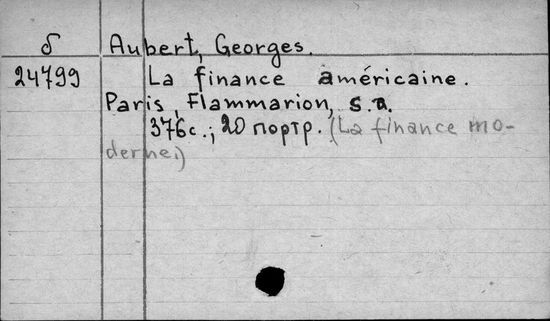 δ Aubert, Georges.
24799 La finance américaine.
Paris, Flammarion, s.a.
376 с.; 20 портр. (La finance mo-
derne.)